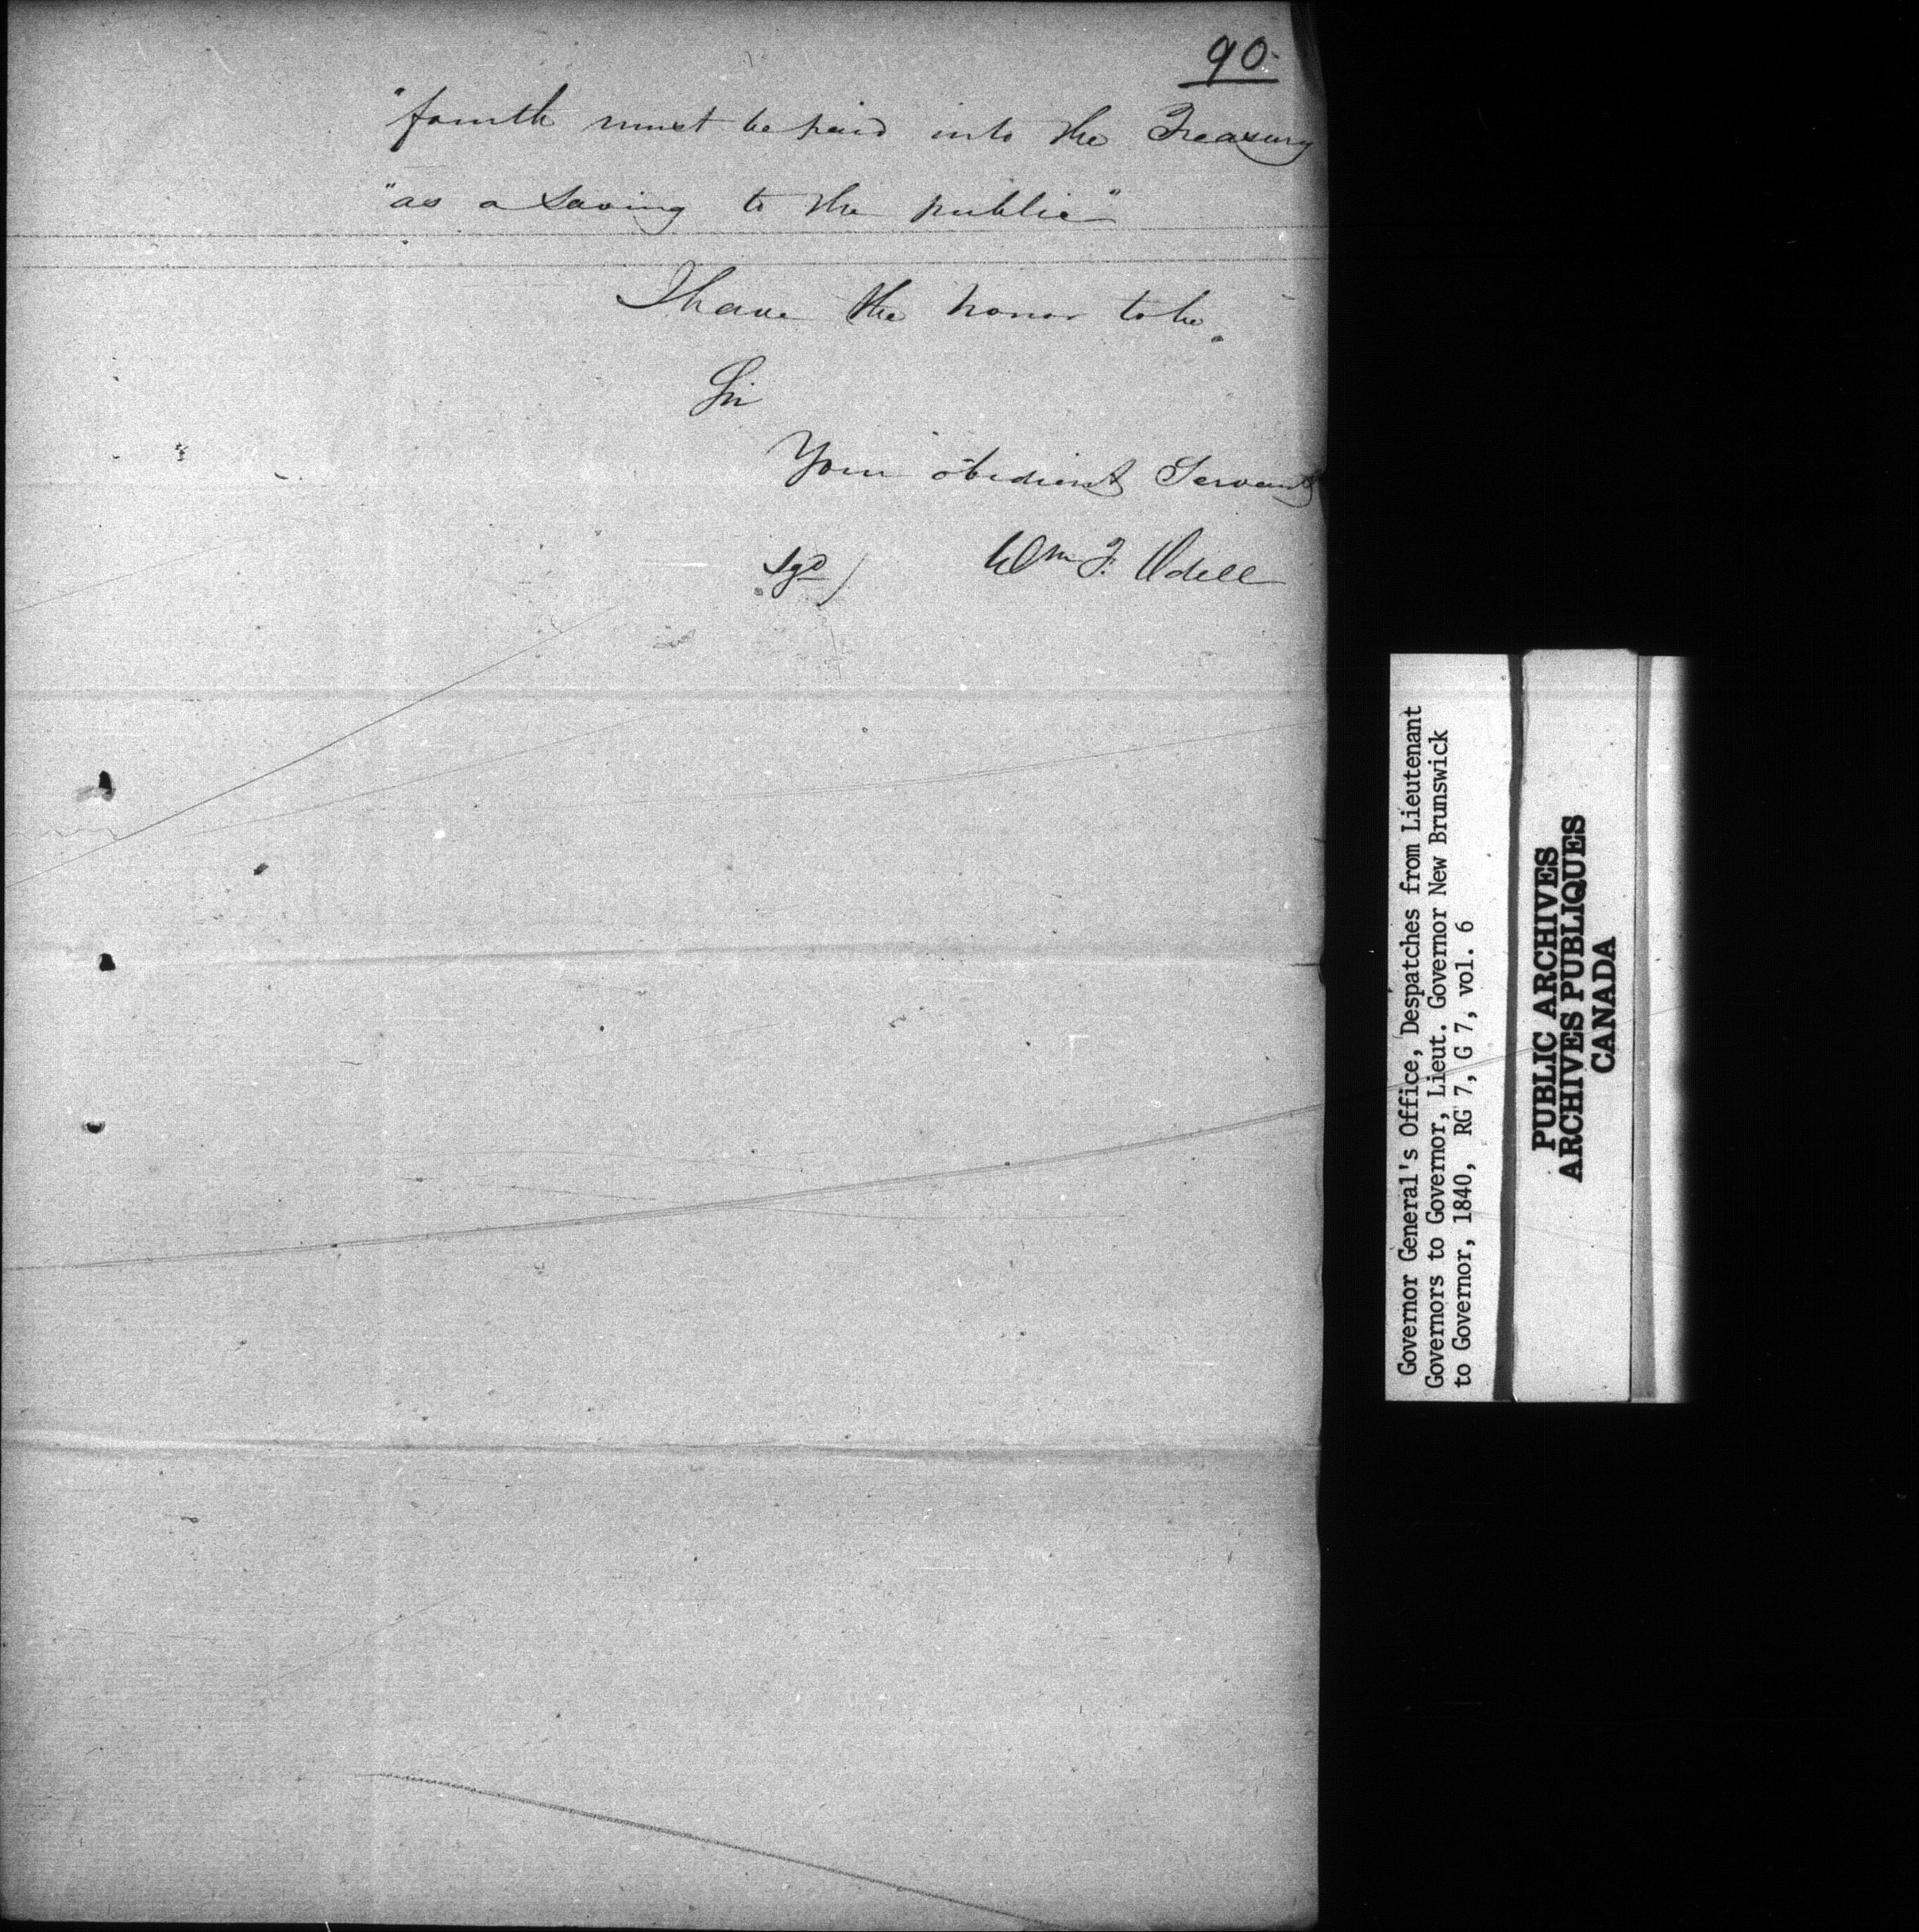 90.
"fourth must be paid into the Treasury
"as a saving to the public"
I have the honor to be.
Sir
Your obedient Servant
Sgd) Wm F. Odell
Governor General's Office, Despatches from Lieutenant
Governors to Governor, Lieut. Governor New Brunswick
to Governor, 1840, RG 7, G 7, vol. 6
PUBLIC ARCHIVES
ARCHIVES PUBLIQUES
CANADA